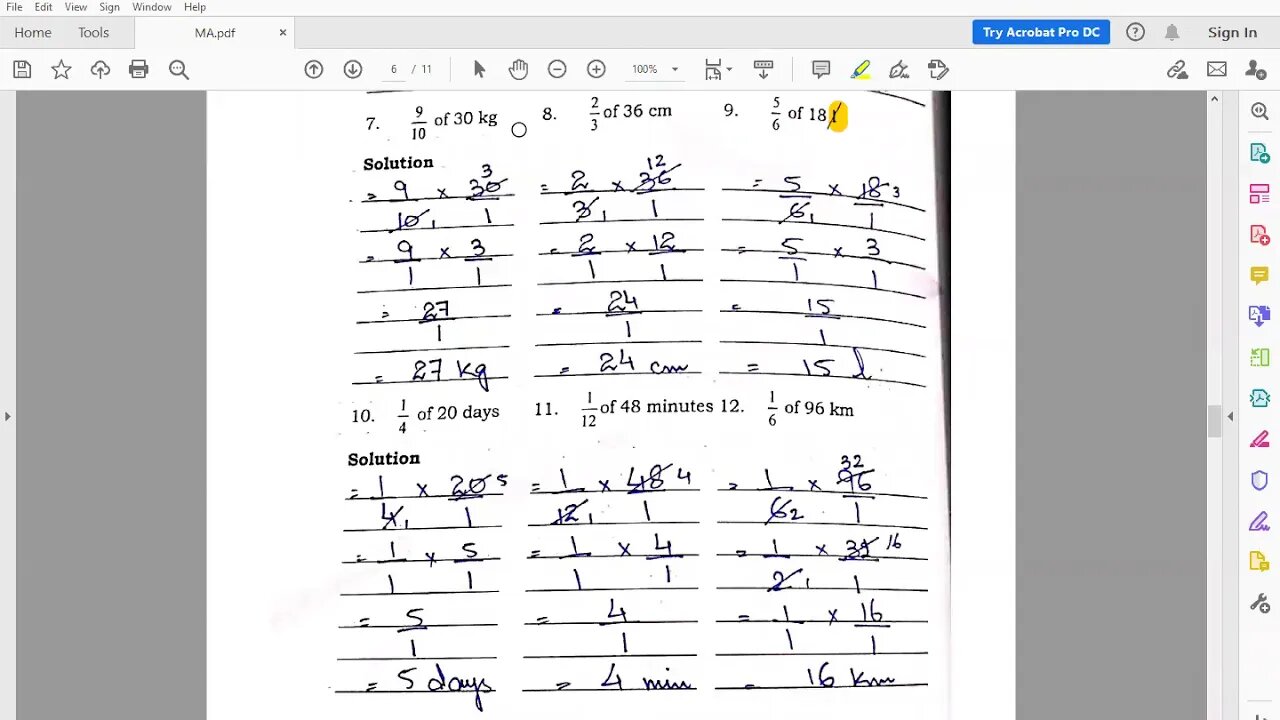 File Edit View Sign Window Help
Home Tools MA.pdf × Try Acrobat Pro DC Sign In
6 / 11 100%
7. 9/10 of 30 kg 8. 2/3 of 36 cm 9. 5/6 of 18 l
Solution
= 9/10 1 × 30/1 3 = 2/3 1 × 36/1 12 = 5/6 1 × 18/1 3
= 9/1 × 3/1 = 2/1 × 12/1 = 5/1 × 3/1
= 27/1 = 24/1 = 15/1
= 27 kg = 24 cm = 15 l
10. 1/4 of 20 days 11. 1/12 of 48 minutes 12. 1/6 of 96 km
Solution
= 1/4 1 × 20/1 5 = 1/12 1 × 48/1 4 = 1/6 2 × 96/1 32
= 1/1 × 5/1 = 1/1 × 4/1 = 1/2 1 × 32/1 16
= 5/1 = 4/1 = 1/1 × 16/1
= 5 days = 4 min = 16 km